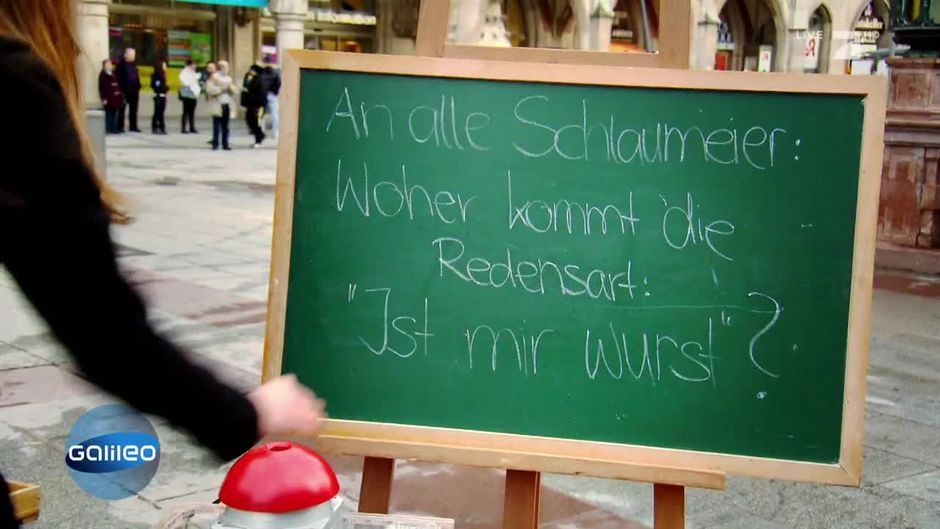 LIVE
HD
An alle Schlaumeier:
Woher kommt die
Redensart:
"Ist mir wurst"?
Galileo